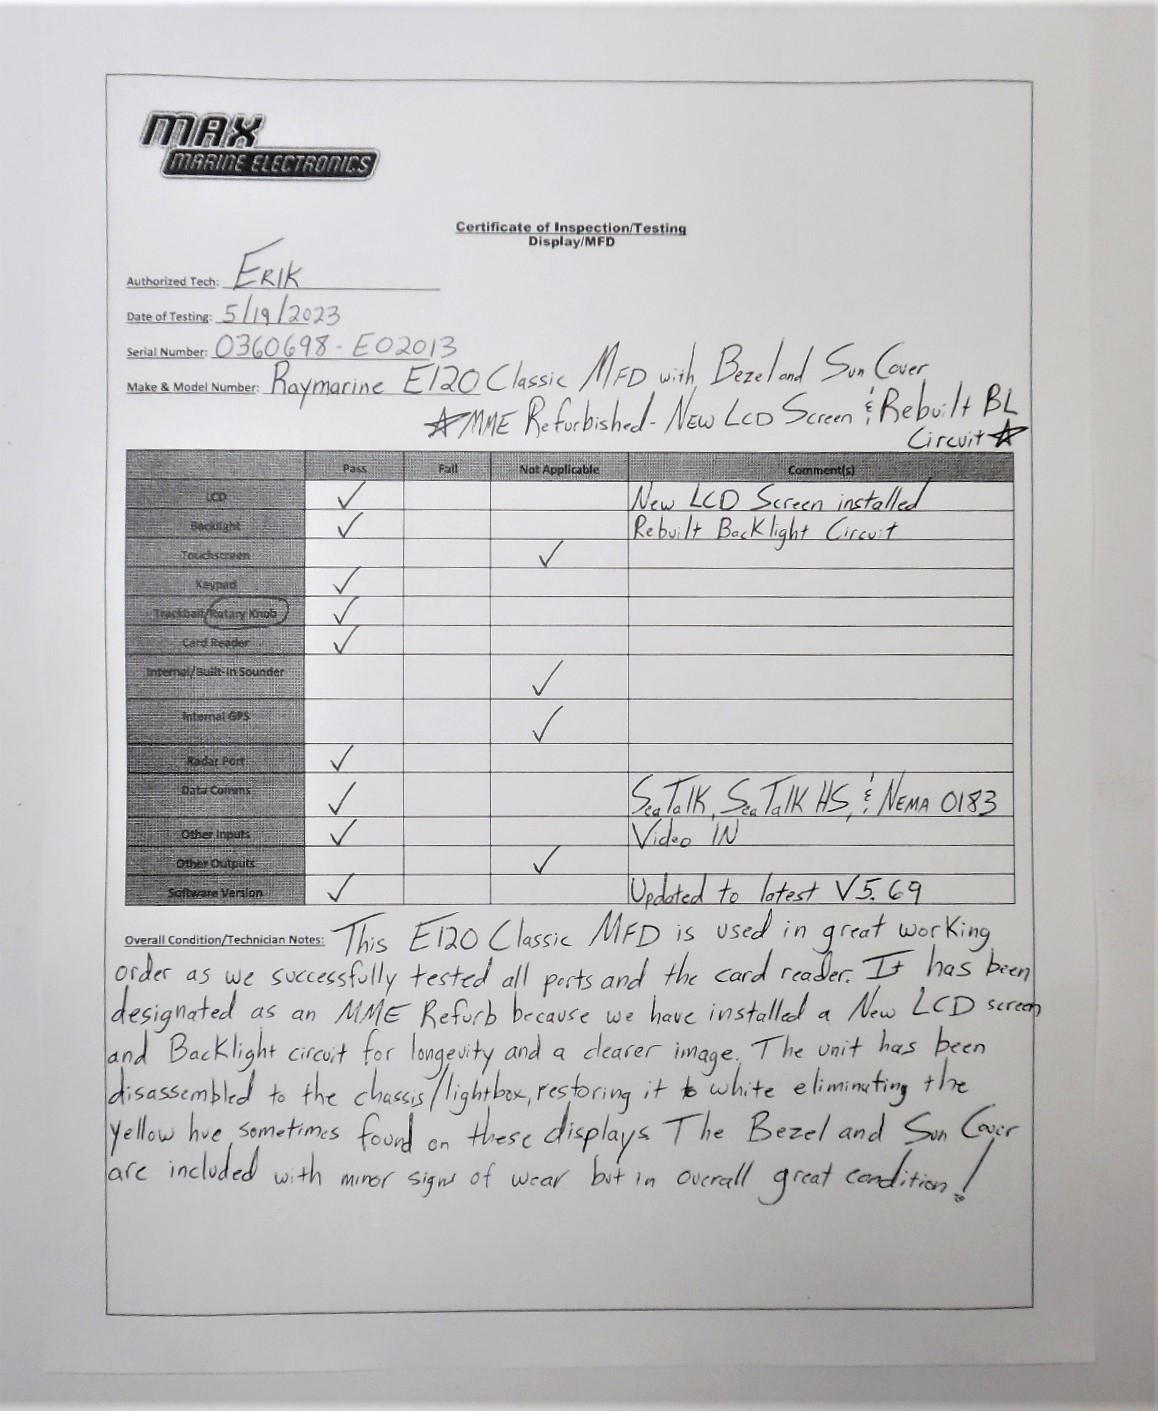 MAX
MARINE ELECTRONICS
Certificate of Inspection/Testing
Display/MFD
Authorized Tech: ERIK
Date of Testing: 5/19/2023
Serial Number: 0360698-E02013
Make & Model Number: Raymarine E120 Classic MFD with Bezel and Sun Cover
☆MME Refurbished - New LCD Screen & Rebuilt BL
Circuit☆
Pass Fail Not Applicable Comment(s)
LCD ✓ New LCD Screen installed
Backlight ✓ Rebuilt Backlight Circuit
Touchscreen ✓
Keypad ✓
Trackball/Rotary Knob ✓
Card Reader ✓
Internal/Built-In Sounder ✓
Internal GPS ✓
Radar Port ✓
Data Comms ✓ SeaTalk, SeaTalk HS, & NEMA 0183
Other Inputs ✓ Video IN
Other Outputs ✓
Software Version ✓ Updated to latest V5.69
Overall Condition/Technician Notes: This E120 Classic MFD is used in great working
order as we successfully tested all ports and the card reader. It has been
designated as an MME Refurb because we have installed a New LCD screen
and Backlight circuit for longevity and a clearer image. The unit has been
disassembled to the chassis/lightbox, restoring it to white eliminating the
yellow hue sometimes found on these displays. The Bezel and Sun Cover
are included with minor signs of wear but in overall great condition!